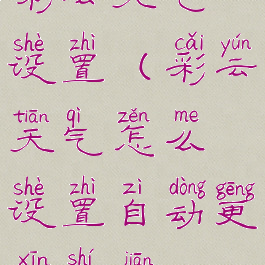 shè zhì cǎi yún
设置（彩云
tiān qì zěn me
天气怎么
shè zhì zì dòng gēng
设置自动更
xīn shí jiān